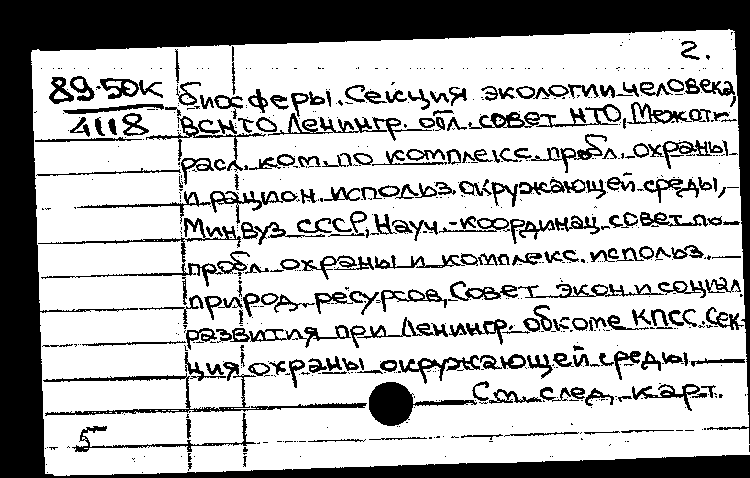 2.
89-50к
4118
биосферы. Секция экологии человека,
ВСНТО. Ленингр. обл. совет НТО, Межот-
расл. ком. по комплекс. пробл. охраны
и рацион. использ. окружающей среды,
Минвуз СССР, Науч.-координац. совет по
пробл. охраны и комплекс. использ.
природ. ресурсов, Совет экон. и социал.
развития при Ленингр. обкоме КПСС. Сек-
ция охраны окружающей среды.
См. след. карт.
5